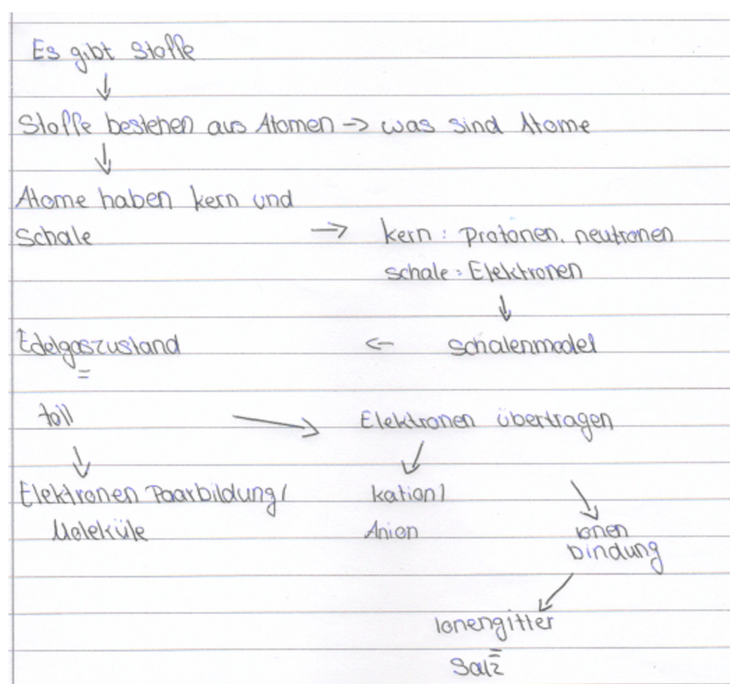 Es gibt Stoffe
↓
Stoffe bestehen aus Atomen → was sind Atome
↓
Atome haben kern und
Schale → kern: Protonen, neutronen
schale: Elektronen
↓
Edelgaszustand ← schalenmodel
=
toll → Elektronen übertragen
↓ ↓ ↘
Elektronen Paarbildung/ kation/
Moleküle Anion ionen
bindung
↙
Ionengitter
=
Salz